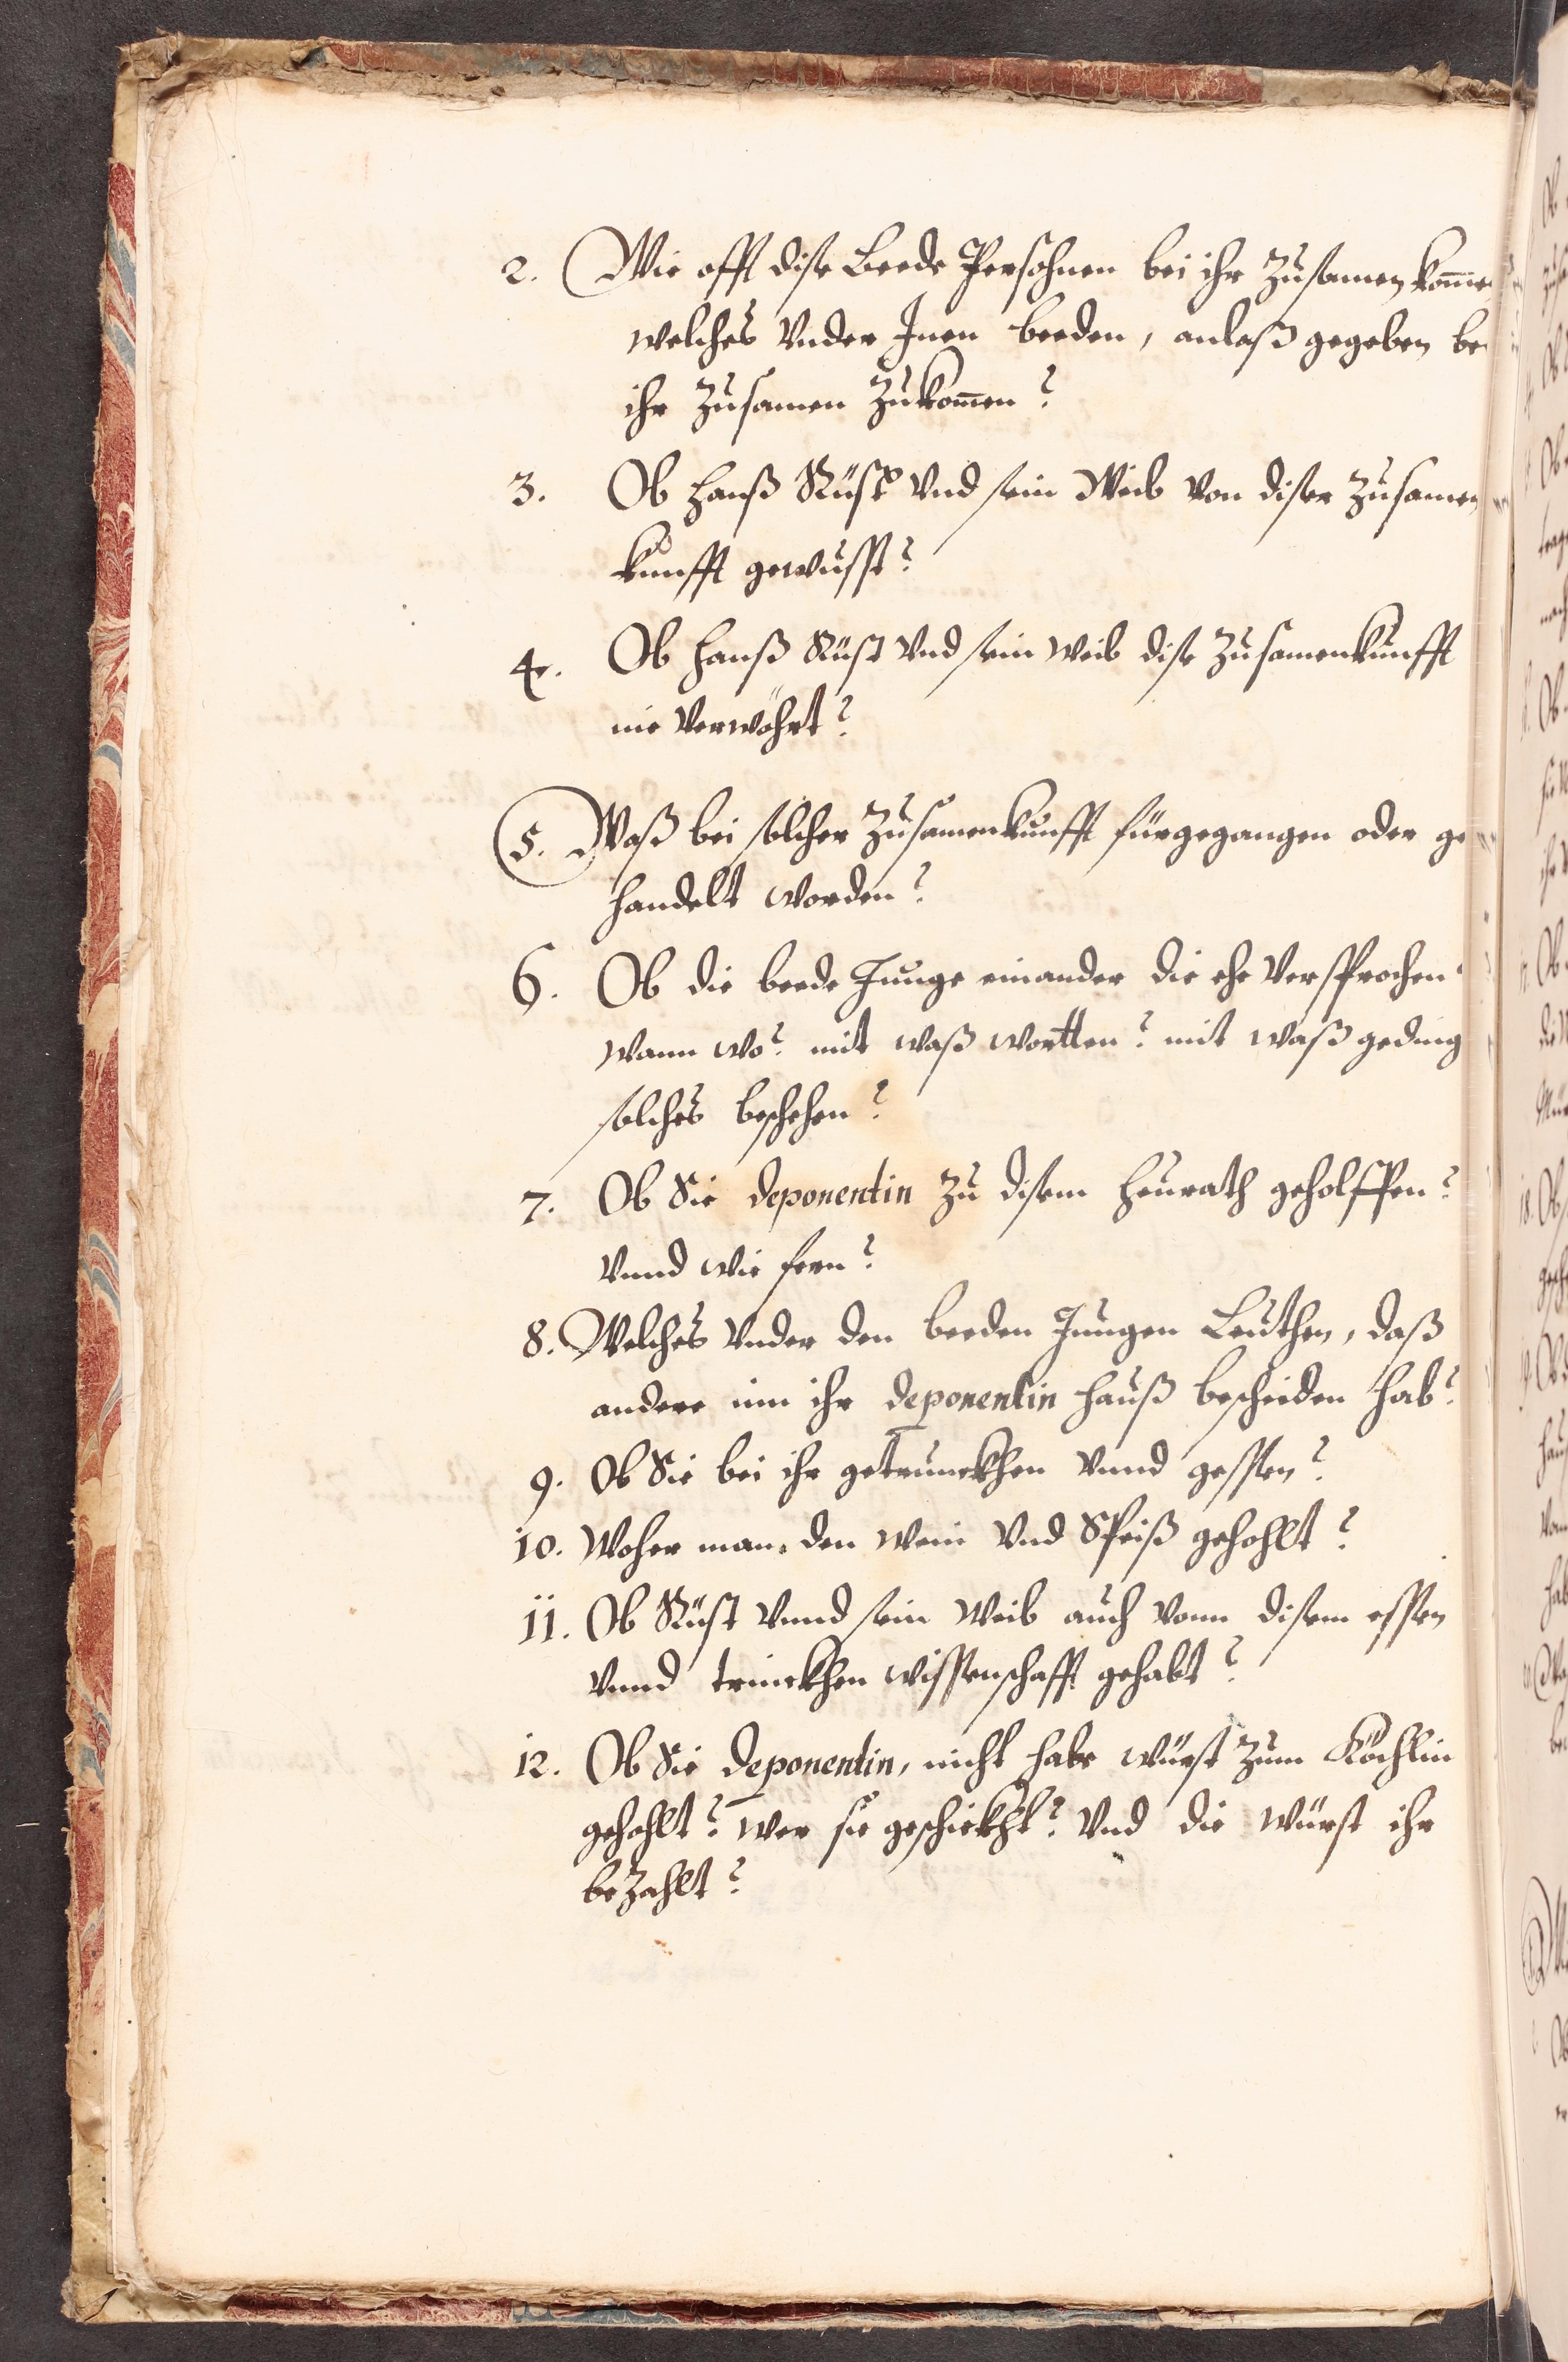 2. Wie offt dise Beede Persohnen bei ihr Zusamen kom̄en
welches Vnder Jnen beeden, anlaß gegeben bei
ihr Zusamen Zukom̄en?
3. Ob Hanß Rüst Vnd sein Weib von diser Zusamen
kunfft gewusst?
4. Ob Hanß Rüst Vnd sein Weib dise Zusamenkunfft
nie Verwöhrt?
5. Waß bei solcher Zusamenkunfft fürgegangen oder ge
handelt worden?
6. Ob die beede Junge einander die ehe Versprochen?
wann wo? mit waß wortten? mit waß geding
solches beschehen?
7. Ob Sie deponentin Zu disem Heurath geholffen?
Vnnd wie fern?
8. Welches Vnder den beeden Jungen Leuthen, daß
andere inn ihr deponentin Hauß bescheiden hab?
9. Ob Sie bei ihr getrunckhen Vnnd gessen?
10. Woher man den Wein Vnd Speiß gehohlt?
11. Ob Rüst Vnnd sein Weib auch vonn disem essen
Vnnd trinckhen wissenschafft gehabt?
12. Ob Sie Deponentin, nicht habe würst Zum Köchlin
gehohlt? wer sie geschickht? Vnd die würst ihr
beZahlt?